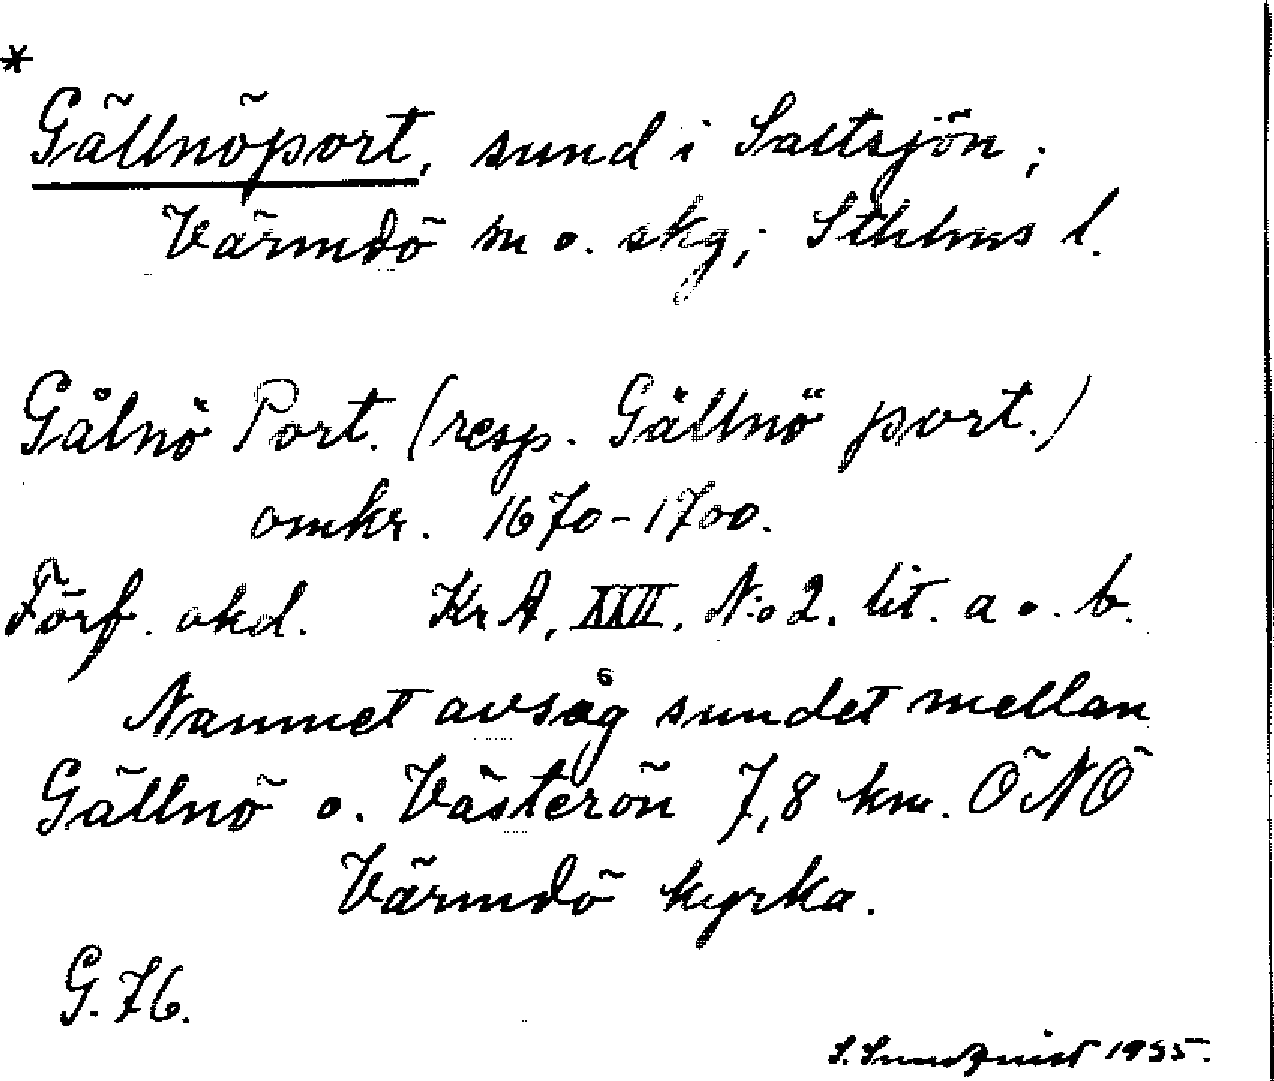 *
Gällnöport, sund i Saltsjön;
Värmdö sn o. skg; Sthlms l.
Gålnö Port. (resp. Gällnö port.)
omkr. 1670-1700.
Förf. okd. Kr A, XXII. N:o 2. lit. a o. b.
Namnet avsåg sundet mellan
Gällnö o. Västerön 7,8 km. ÖNÖ
Värmdö kyrka.
G. 76.
S. Sundquist 1955.